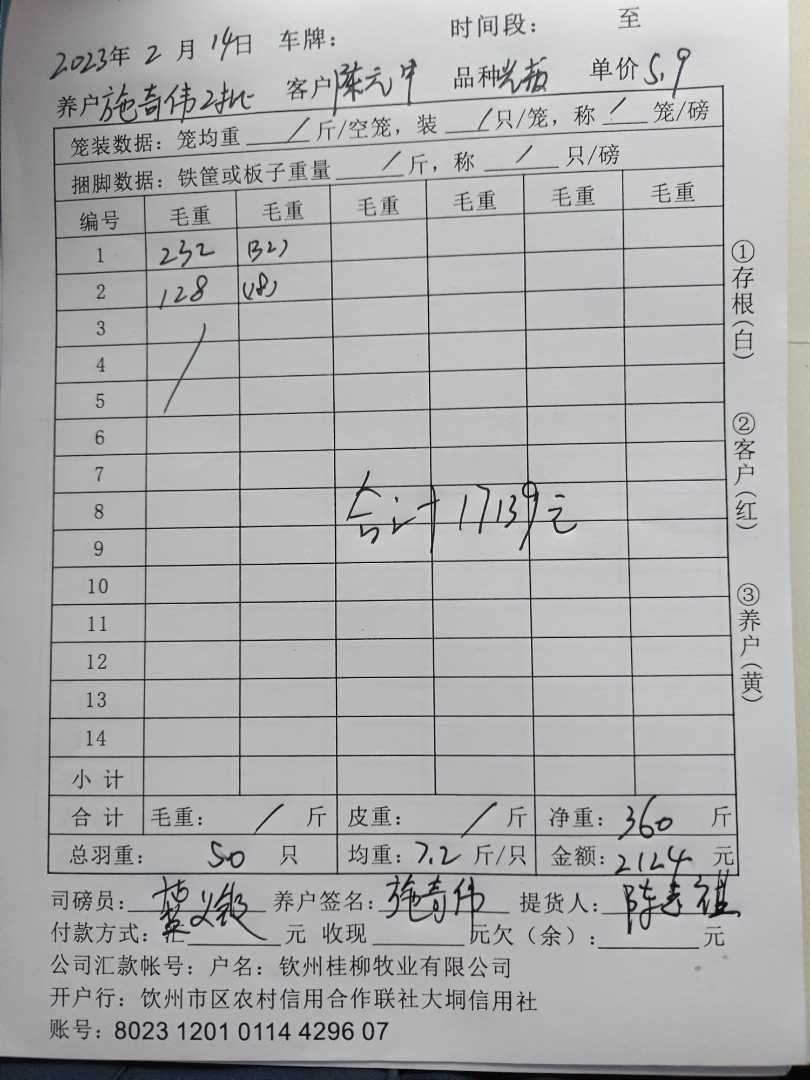 2023年 2 月 14日 车牌: 时间段: 至
养户施奇伟2批 客户陈元中 品种 单价5.9
笼装数据: 笼均重 / 斤/空笼, 装 / 只/笼, 称 / 笼/磅
捆脚数据: 铁筐或板子重量 / 斤, 称 / 只/磅
编号 毛重 毛重 毛重 毛重 毛重 毛重
1 232 (32)
2 128 (18)
3
4
5
6
7
8 合计 1739元
9
10
11
12
13
14
小 计
合 计 毛重: / 斤 皮重: / 斤 净重: 360 斤
总羽重: 50 只 均重: 7.2 斤/只 金额: 2124 元
司磅员: 养户签名: 施奇伟 提货人:
付款方式: 汇 元 收现 元欠(余): 元
公司汇款帐号: 户名: 钦州桂柳牧业有限公司
开户行: 饮州市区农村信用合作联社大垌信用社
账号: 8023 1201 0114 4296 07
①存根(白)
②客户(红)
③养户(黄)